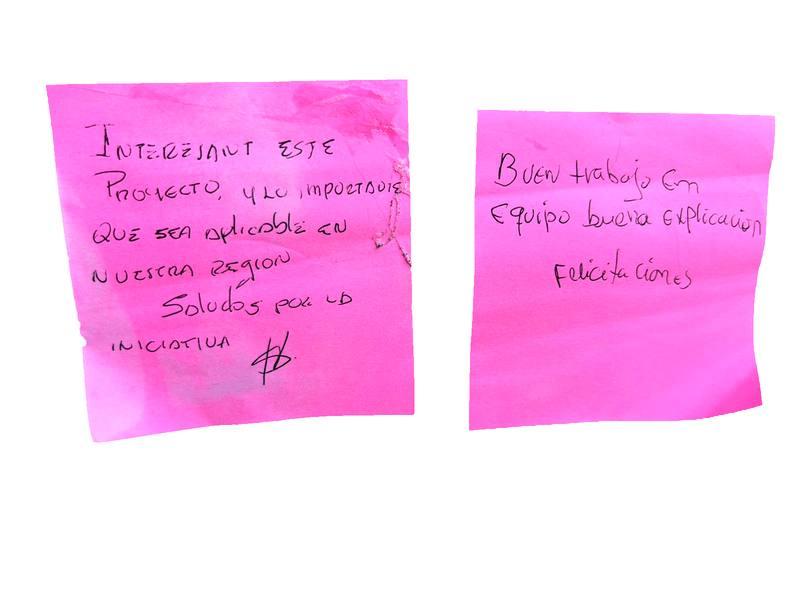 INTERESANT ESTE
PROYECTO, Y LO IMPORTANTE
QUE SEA APLICABLE EN
NUESTRA REGION
Saludos POR LA
INICIATIVA
Buen trabajo en
Equipo buena explicacion
Felicitaciones